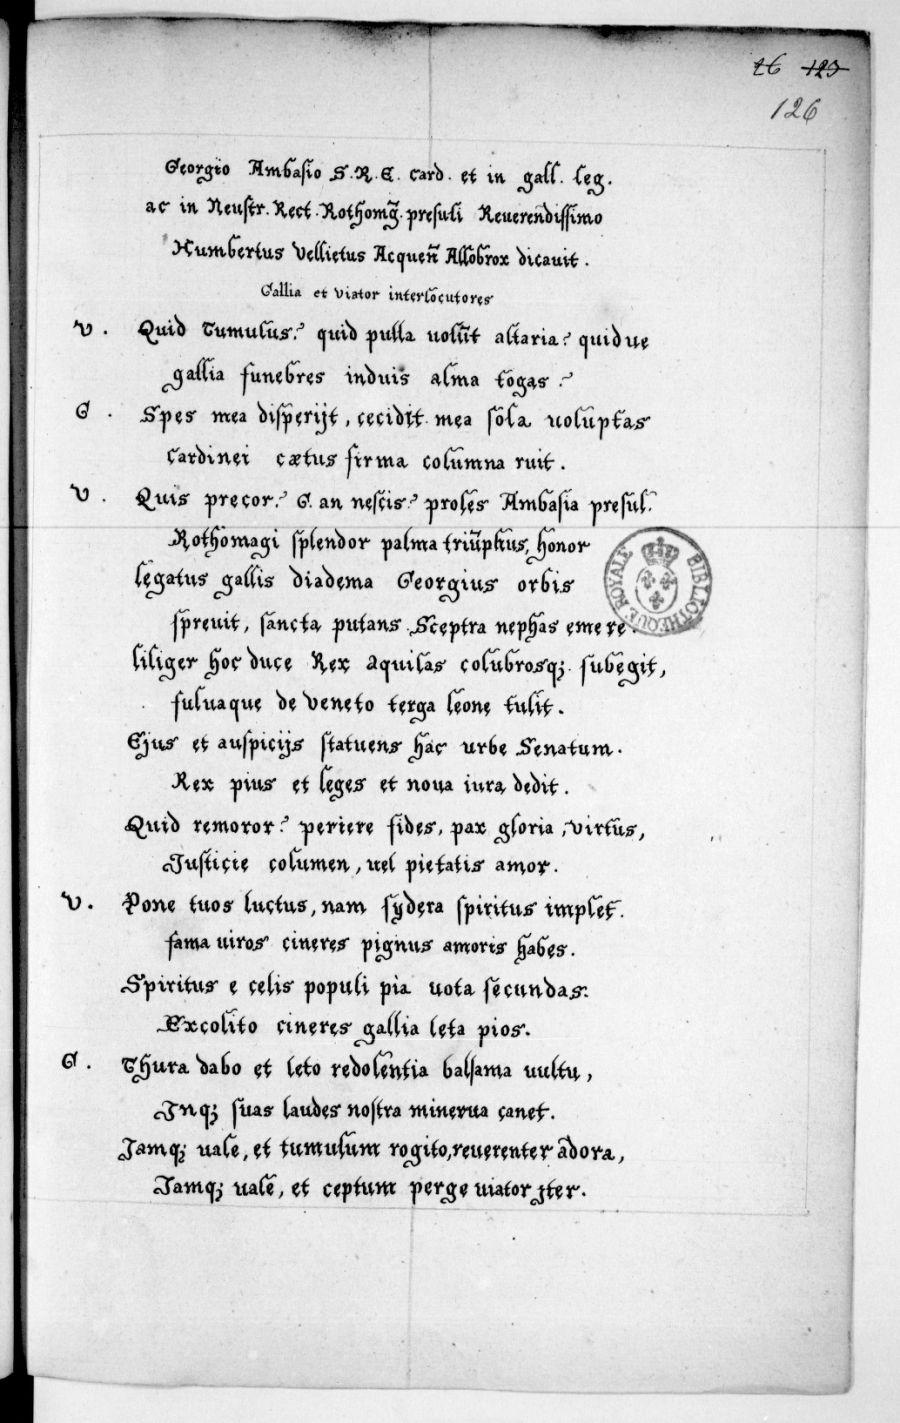 26 123
126
Georgio Ambasio S. R. E. card. et in gall. leg.
ac in Neustr. Rect. Rothomg̃. presuli Reuerendissimo
Humbertus Vellietus Acqueñ Allobrox dicauit.
Gallia et viator interlocutores
V. Quid Tumulus? quid pulla uolũt altaria? quid ue
gallia funebres induis alma togas?
G. Spes mea disperijt, cecidit mea sola uoluptas
Cardinei cætus firma columna ruit.
V. Quis precor? G. an nescis? proles Ambasia presul.
Rothomagi splendor palma triũphus, honor
legatus gallis diadema Georgius orbis
spreuit, sancta putans Sceptra nephas emere.
liliger hoc duce Rex aquilas colubrosq; subegit,
fuluaque de veneto terga leone tulit.
Ejus et auspicijs statuens hac urbe Senatum.
Rex pius et leges et noua iura dedit.
Quid remoror? periere fides, pax gloria, virtus,
Justicie columen, uel pietatis amor.
V. Pone tuos luctus, nam sydera spiritus implet.
fama uiros cineres pignus amoris habes.
Spiritus e celis populi pia uota secundas.
Excolito cineres gallia leta pios.
G. Thura dabo et leto redolentia balsama uultu,
Inq; suas laudes nostra minerua canet.
Jamq; uale, et tumulum rogito, reuerenter adora,
Jamq; uale, et ceptum perge uiator jter.
BIBLIOTHEQUE ROYALE